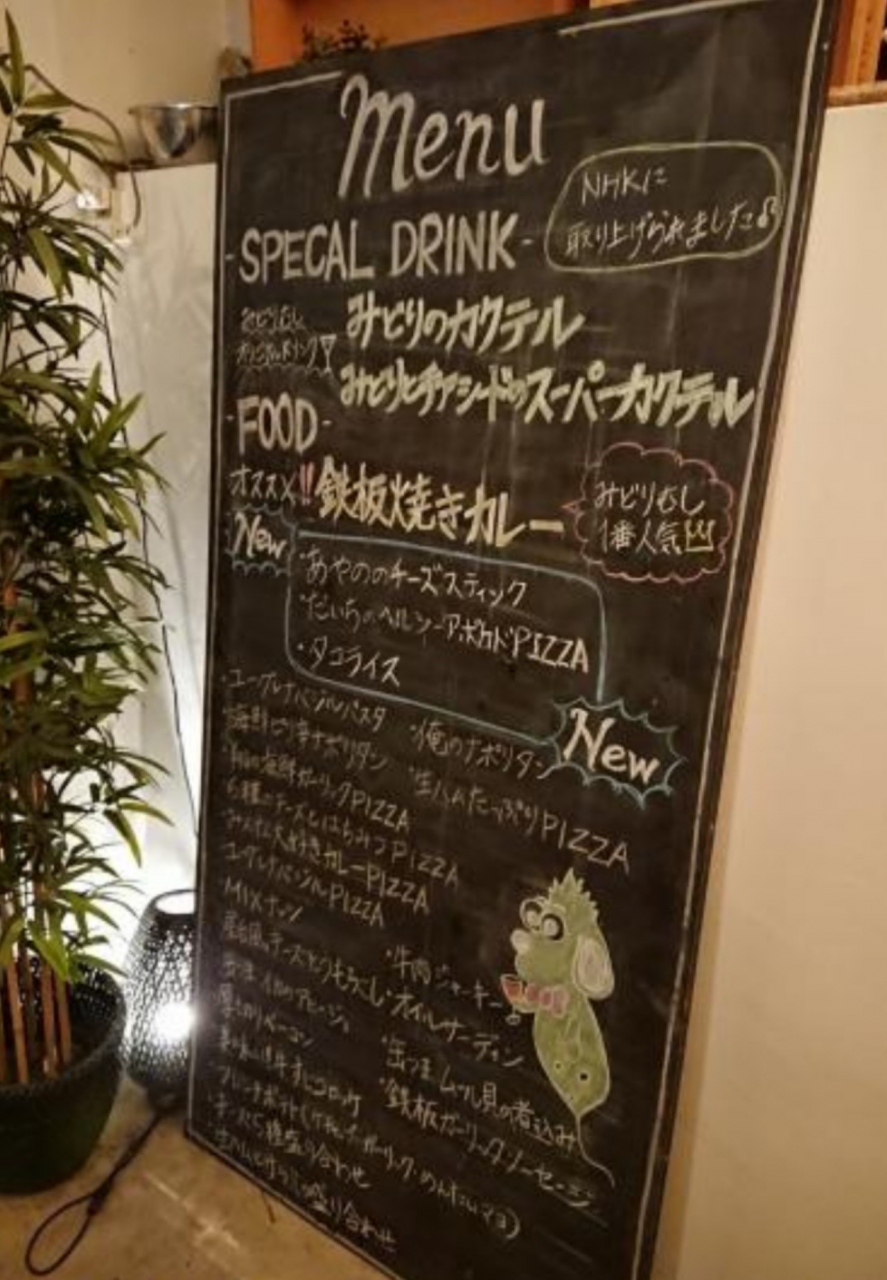 Menu
NHKに
取り上げられました♪
-SPECAL DRINK-
みどりむし
オリジナルドリンク
みどりのカクテル
みどりとチアシードのスーパーカクテル
-FOOD-
オススメ!!鉄板焼きカレー
みどりむし
1番人気
New
・あやののチーズスティック
・だいちのヘルシーアボカドPIZZA
・タコライス
New
・ユーグレナバジルパスタ
・俺のナポリタン
・海鮮ピリ辛ナポリタン
・生ハムたっぷりPIZZA
海鮮ガーリックPIZZA
チーズとはちみつPIZZA
みんな大好きカレーPIZZA
ユーグレナバジルPIZZA
MIXナッツ
・牛肉ジャーキー
屋台風チーズとうもろこし
・オイルサーディン
アヒージョ
・缶つま ムール貝の煮込み
厚切りベーコン
・鉄板ガーリックソーセージ
牛すじコロッケ
フレンチポテト(ケチャップ・ガーリック・めんたいマヨ)
チーズ5種盛り合わせ
生ハムとサラミの盛り合わせ